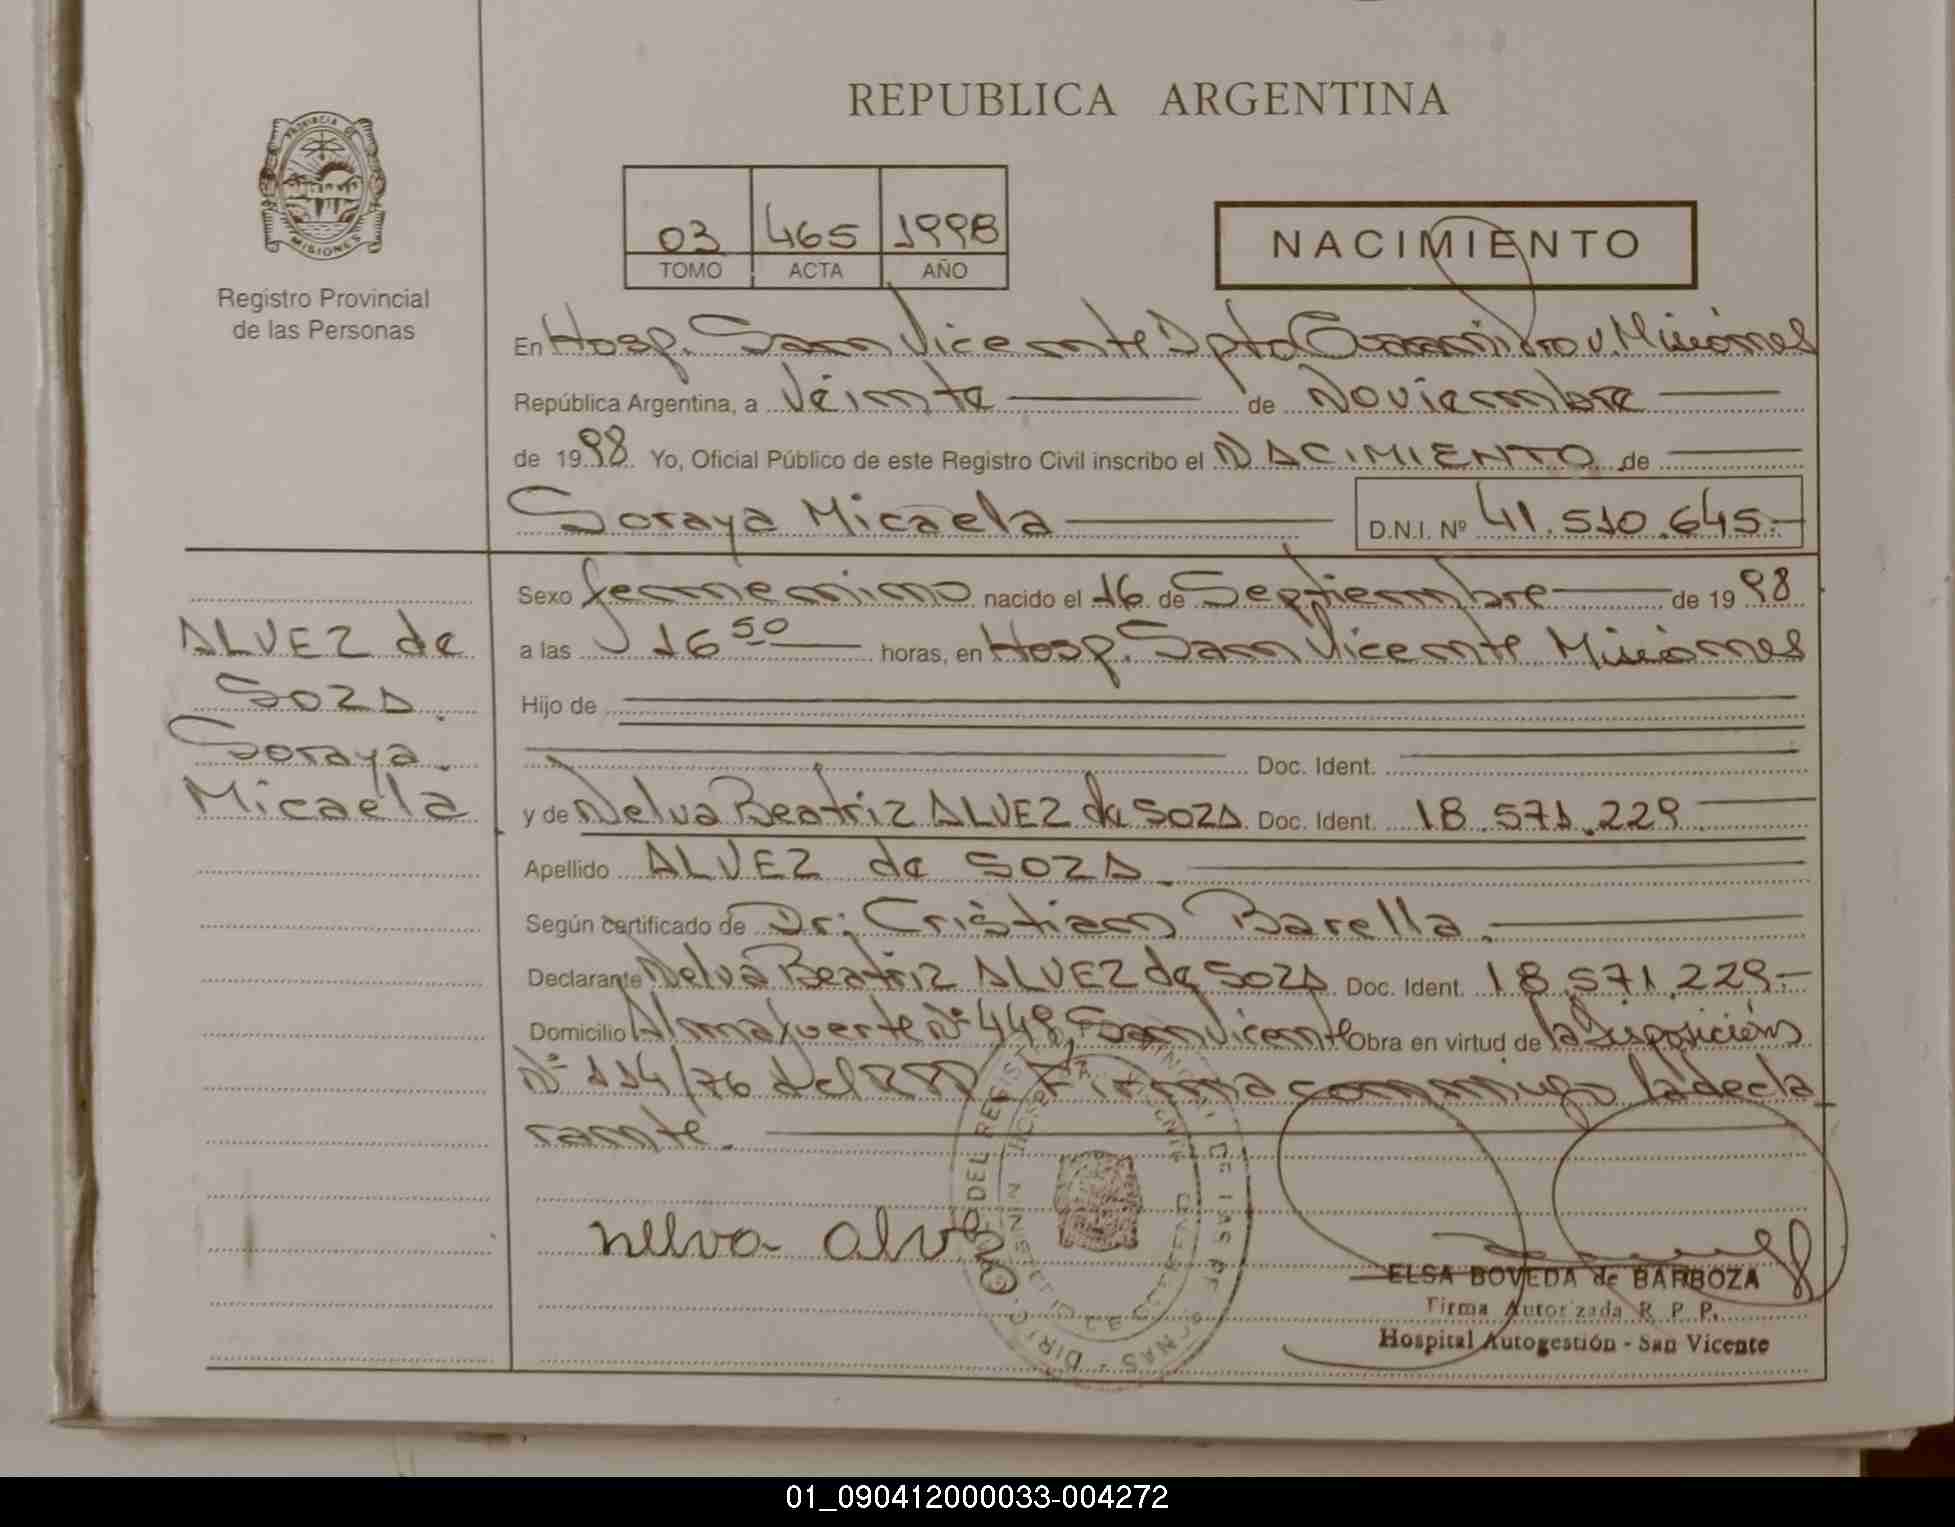 REPUBLICA ARGENTINA
PROVINCIA DE
MISIONES
Registro Provincial
de las Personas
03 465 1998
TOMO ACTA AÑO
NACIMIENTO
En Hosp. San Vicente Dpto Guaraní Prov. Misiones
República Argentina, a Veinte de Noviembre
de 1998 Yo, Oficial Público de este Registro Civil inscribo el NACIMIENTO de
Soraya Micaela D.N.I. Nº 41.510.645.-
ALVEZ de
SOZA.
Soraya
Micaela
Sexo femenino nacido el 16 de Septiembre de 1998
a las 16 50 horas, en Hosp. San Vicente Misiones
Hijo de
Doc. Ident.
y de Nelva Beatriz ALVEZ de SOZA Doc. Ident. 18.571.229
Apellido ALVEZ de SOZA
Según certificado de Dr. Cristian Barella.
Declarante Nelva Beatriz ALVEZ de SOZA Doc. Ident. 18.571.229.-
Domicilio Almafuerte Nº 448, San Vicente Obra en virtud de la Disposición
Nº 114/76 del RPP. Firma conmigo la decla
rante.
nelva alvez
ELSA BOVEDA de BARBOZA
Firma Autorizada R. P. P.
Hospital Autogestión - San Vicente
01_090412000033-004272